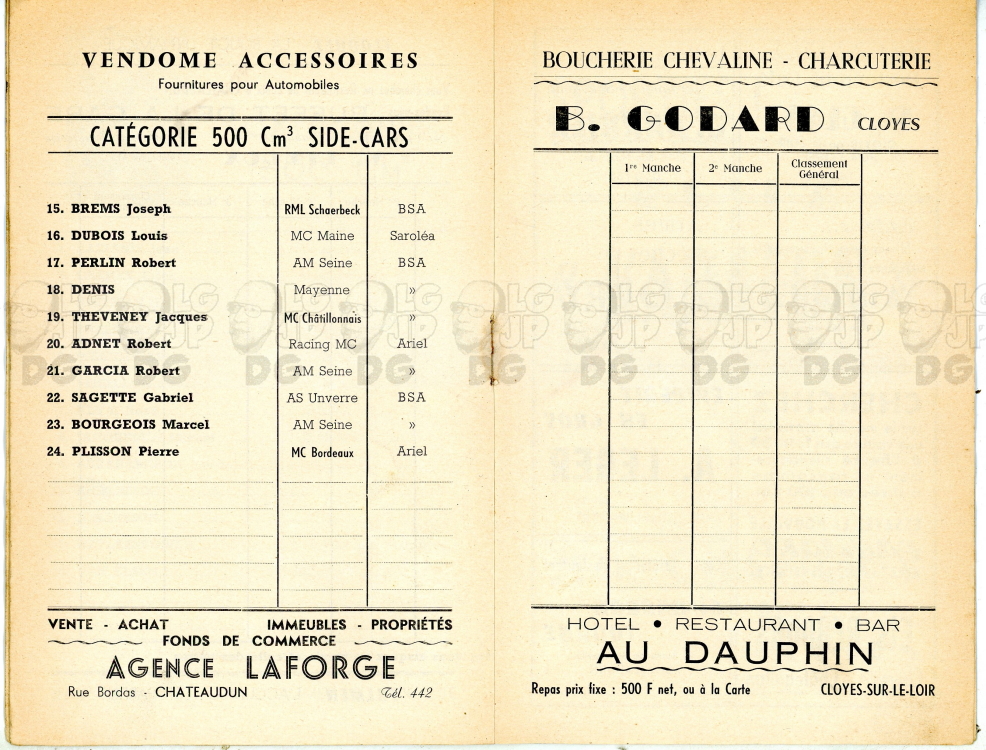 VENDOME ACCESSOIRES
Fournitures pour Automobiles
CATÉGORIE 500 Cm³ SIDE-CARS
15. BREMS Joseph RML Schaerbeck BSA
16. DUBOIS Louis MC Maine Saroléa
17. PERLIN Robert AM Seine BSA
18. DENIS Mayenne »
19. THEVENEY Jacques MC Châtillonnais »
20. ADNET Robert Racing MC Ariel
21. GARCIA Robert AM Seine »
22. SAGETTE Gabriel AS Unverre BSA
23. BOURGEOIS Marcel AM Seine »
24. PLISSON Pierre MC Bordeaux Ariel
VENTE - ACHAT IMMEUBLES - PROPRIÉTÉS
FONDS DE COMMERCE
AGENCE LAFORGE
Rue Bordas - CHATEAUDUN Tél. 442
BOUCHERIE CHEVALINE - CHARCUTERIE
B. GODARD CLOYES
1re Manche 2e Manche Classement Général
HOTEL • RESTAURANT • BAR
AU DAUPHIN
Repas prix fixe : 500 F net, ou à la Carte CLOYES-SUR-LE-LOIR
LG JP DG